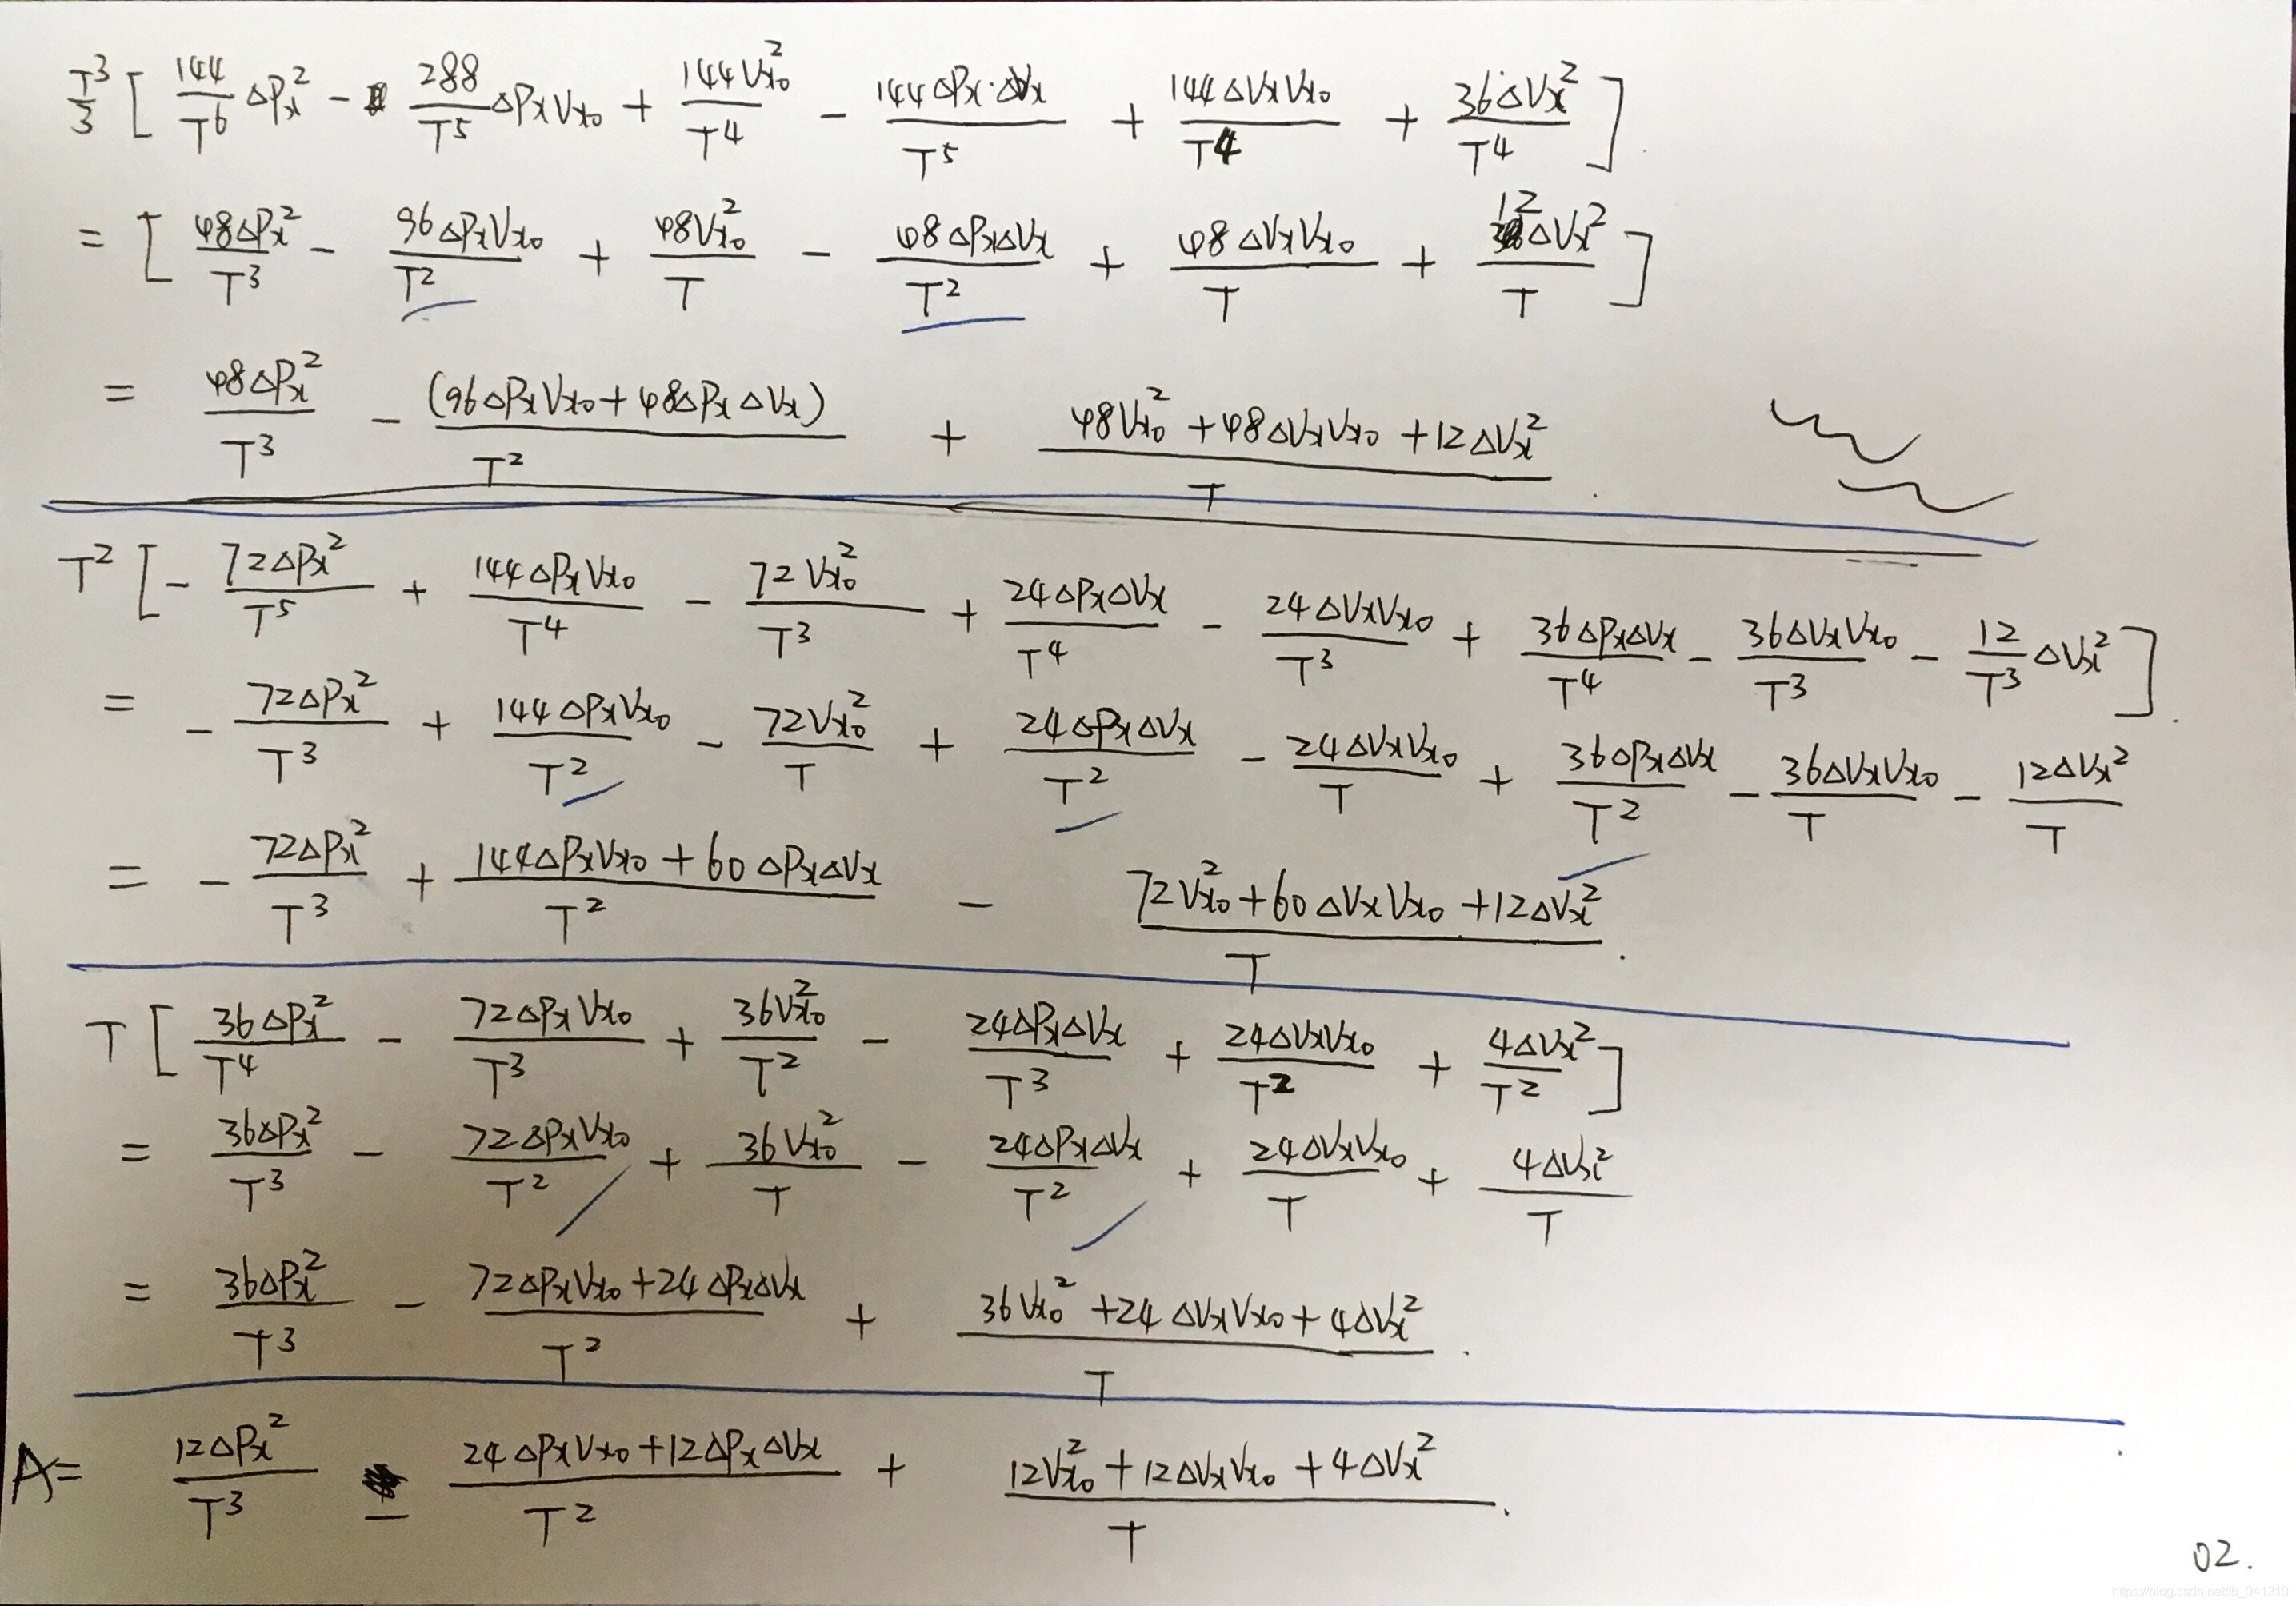 T³/3 [ 144/T⁶ ΔPx² - 288/T⁵ ΔPxVx₀ + 144Vx₀²/T⁴ - 144ΔPx·ΔVx/T⁵ + 144ΔVxVx₀/T⁴ + 36ΔVx²/T⁴ ]
= [ 48ΔPx²/T³ - 96ΔPxVx₀/T² + 48Vx₀²/T - 48ΔPxΔVx/T² + 48ΔVxVx₀/T + 12ΔVx²/T ]
= 48ΔPx²/T³ - (96ΔPxVx₀+48ΔPxΔVx)/T² + (48Vx₀²+48ΔVxVx₀+12ΔVx²)/T
T² [ - 72ΔPx²/T⁵ + 144ΔPxVx₀/T⁴ - 72Vx₀²/T³ + 24ΔPxΔVx/T⁴ - 24ΔVxVx₀/T³ + 36ΔPxΔVx/T⁴ - 36ΔVxVx₀/T³ - 12/T³ ΔVx² ]
= - 72ΔPx²/T³ + 144ΔPxVx₀/T² - 72Vx₀²/T + 24ΔPxΔVx/T² - 24ΔVxVx₀/T + 36ΔPxΔVx/T² - 36ΔVxVx₀/T - 12ΔVx²/T
= - 72ΔPx²/T³ + (144ΔPxVx₀+60ΔPxΔVx)/T² - (72Vx₀²+60ΔVxVx₀+12ΔVx²)/T
T [ 36ΔPx²/T⁴ - 72ΔPxVx₀/T³ + 36Vx₀²/T² - 24ΔPxΔVx/T³ + 24ΔVxVx₀/T² + 4ΔVx²/T² ]
= 36ΔPx²/T³ - 72ΔPxVx₀/T² + 36Vx₀²/T - 24ΔPxΔVx/T² + 24ΔVxVx₀/T + 4ΔVx²/T
= 36ΔPx²/T³ - (72ΔPxVx₀+24ΔPxΔVx)/T² + (36Vx₀²+24ΔVxVx₀+4ΔVx²)/T
A= 12ΔPx²/T³ - (24ΔPxVx₀+12ΔPxΔVx)/T² + (12Vx₀²+12ΔVxVx₀+4ΔVx²)/T
02.
https://blog.csdn.net/fb_941219